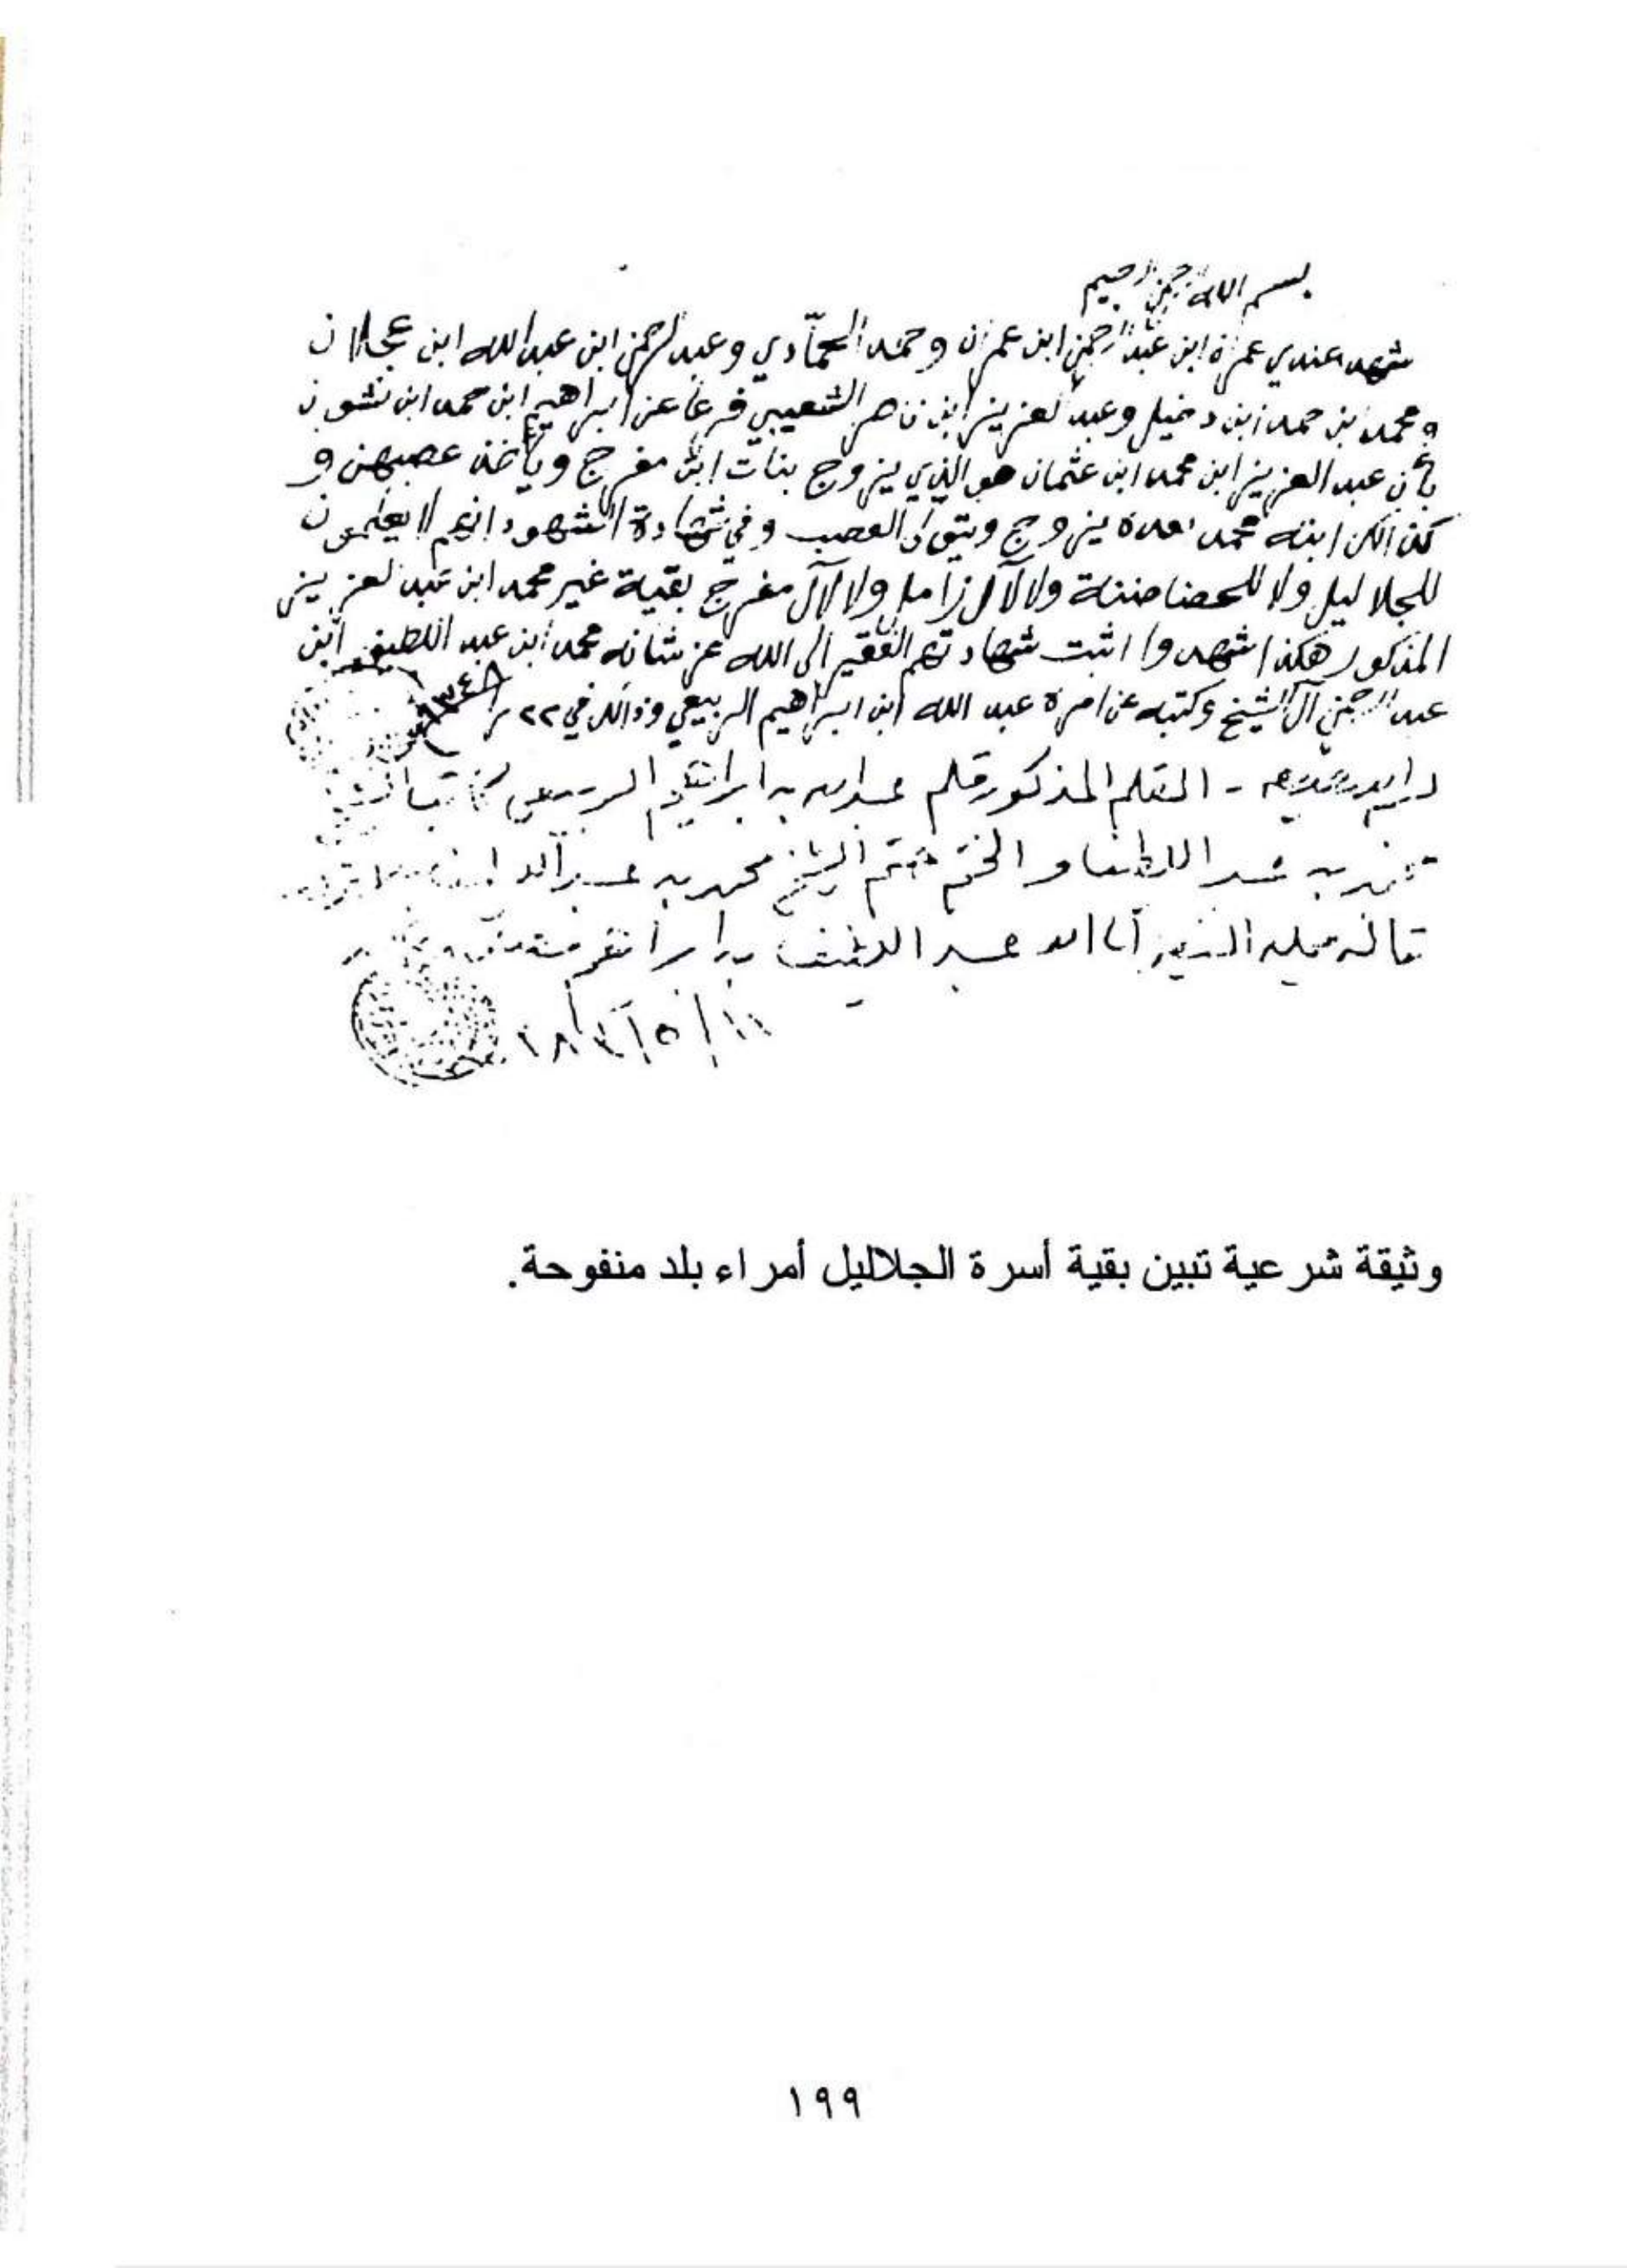 بسم الله الرحمن الرحيم
شهد عندي عمر ابن عبد الرحمن ابن عمران وحمد الحمّادي وعبد الرحمن ابن عبد الله ابن عجلان
ومحمد ابن حمد ابن دخيل وعبد العزيز ابن ناصر الشعيبي فرعا عن ابراهيم ابن محمد ابن نشوان
بأن عبد العزيز ابن محمد ابن عثمان هو الذي يزوج بنات ابن مفرج وياخذ عصبهن و
كذالك ابنه محمد بعده يزوج ويتولى العصب وفي شهادة الشهود انهم لا يعلمون
للجلاليل ولا للحصانة ولا لآل زامل ولا لآل مفرج بقية غير محمد ابن عبد العزيز
المذكور هكذا شهدوا اثبت شهادتهم الفقير الى الله عز شانه محمد ابن عبد اللطيف ابن
عبد الرحمن آل الشيخ وكتبه عن امره عبد الله ابن ابراهيم الربيعي وذالك في ٢٢ ١٣٤٨
القلم المذكور قلم عبد الله بن ابراهيم الربيعي كاتب الشيخ
محمد بن عبد اللطيف والختم ختم الشيخ محمد بن عبد
قاله عبد اللطيف بن ابراهيم
وثيقة شرعية تبين بقية أسرة الجلاليل أمراء بلد منفوحة.
١٩٩